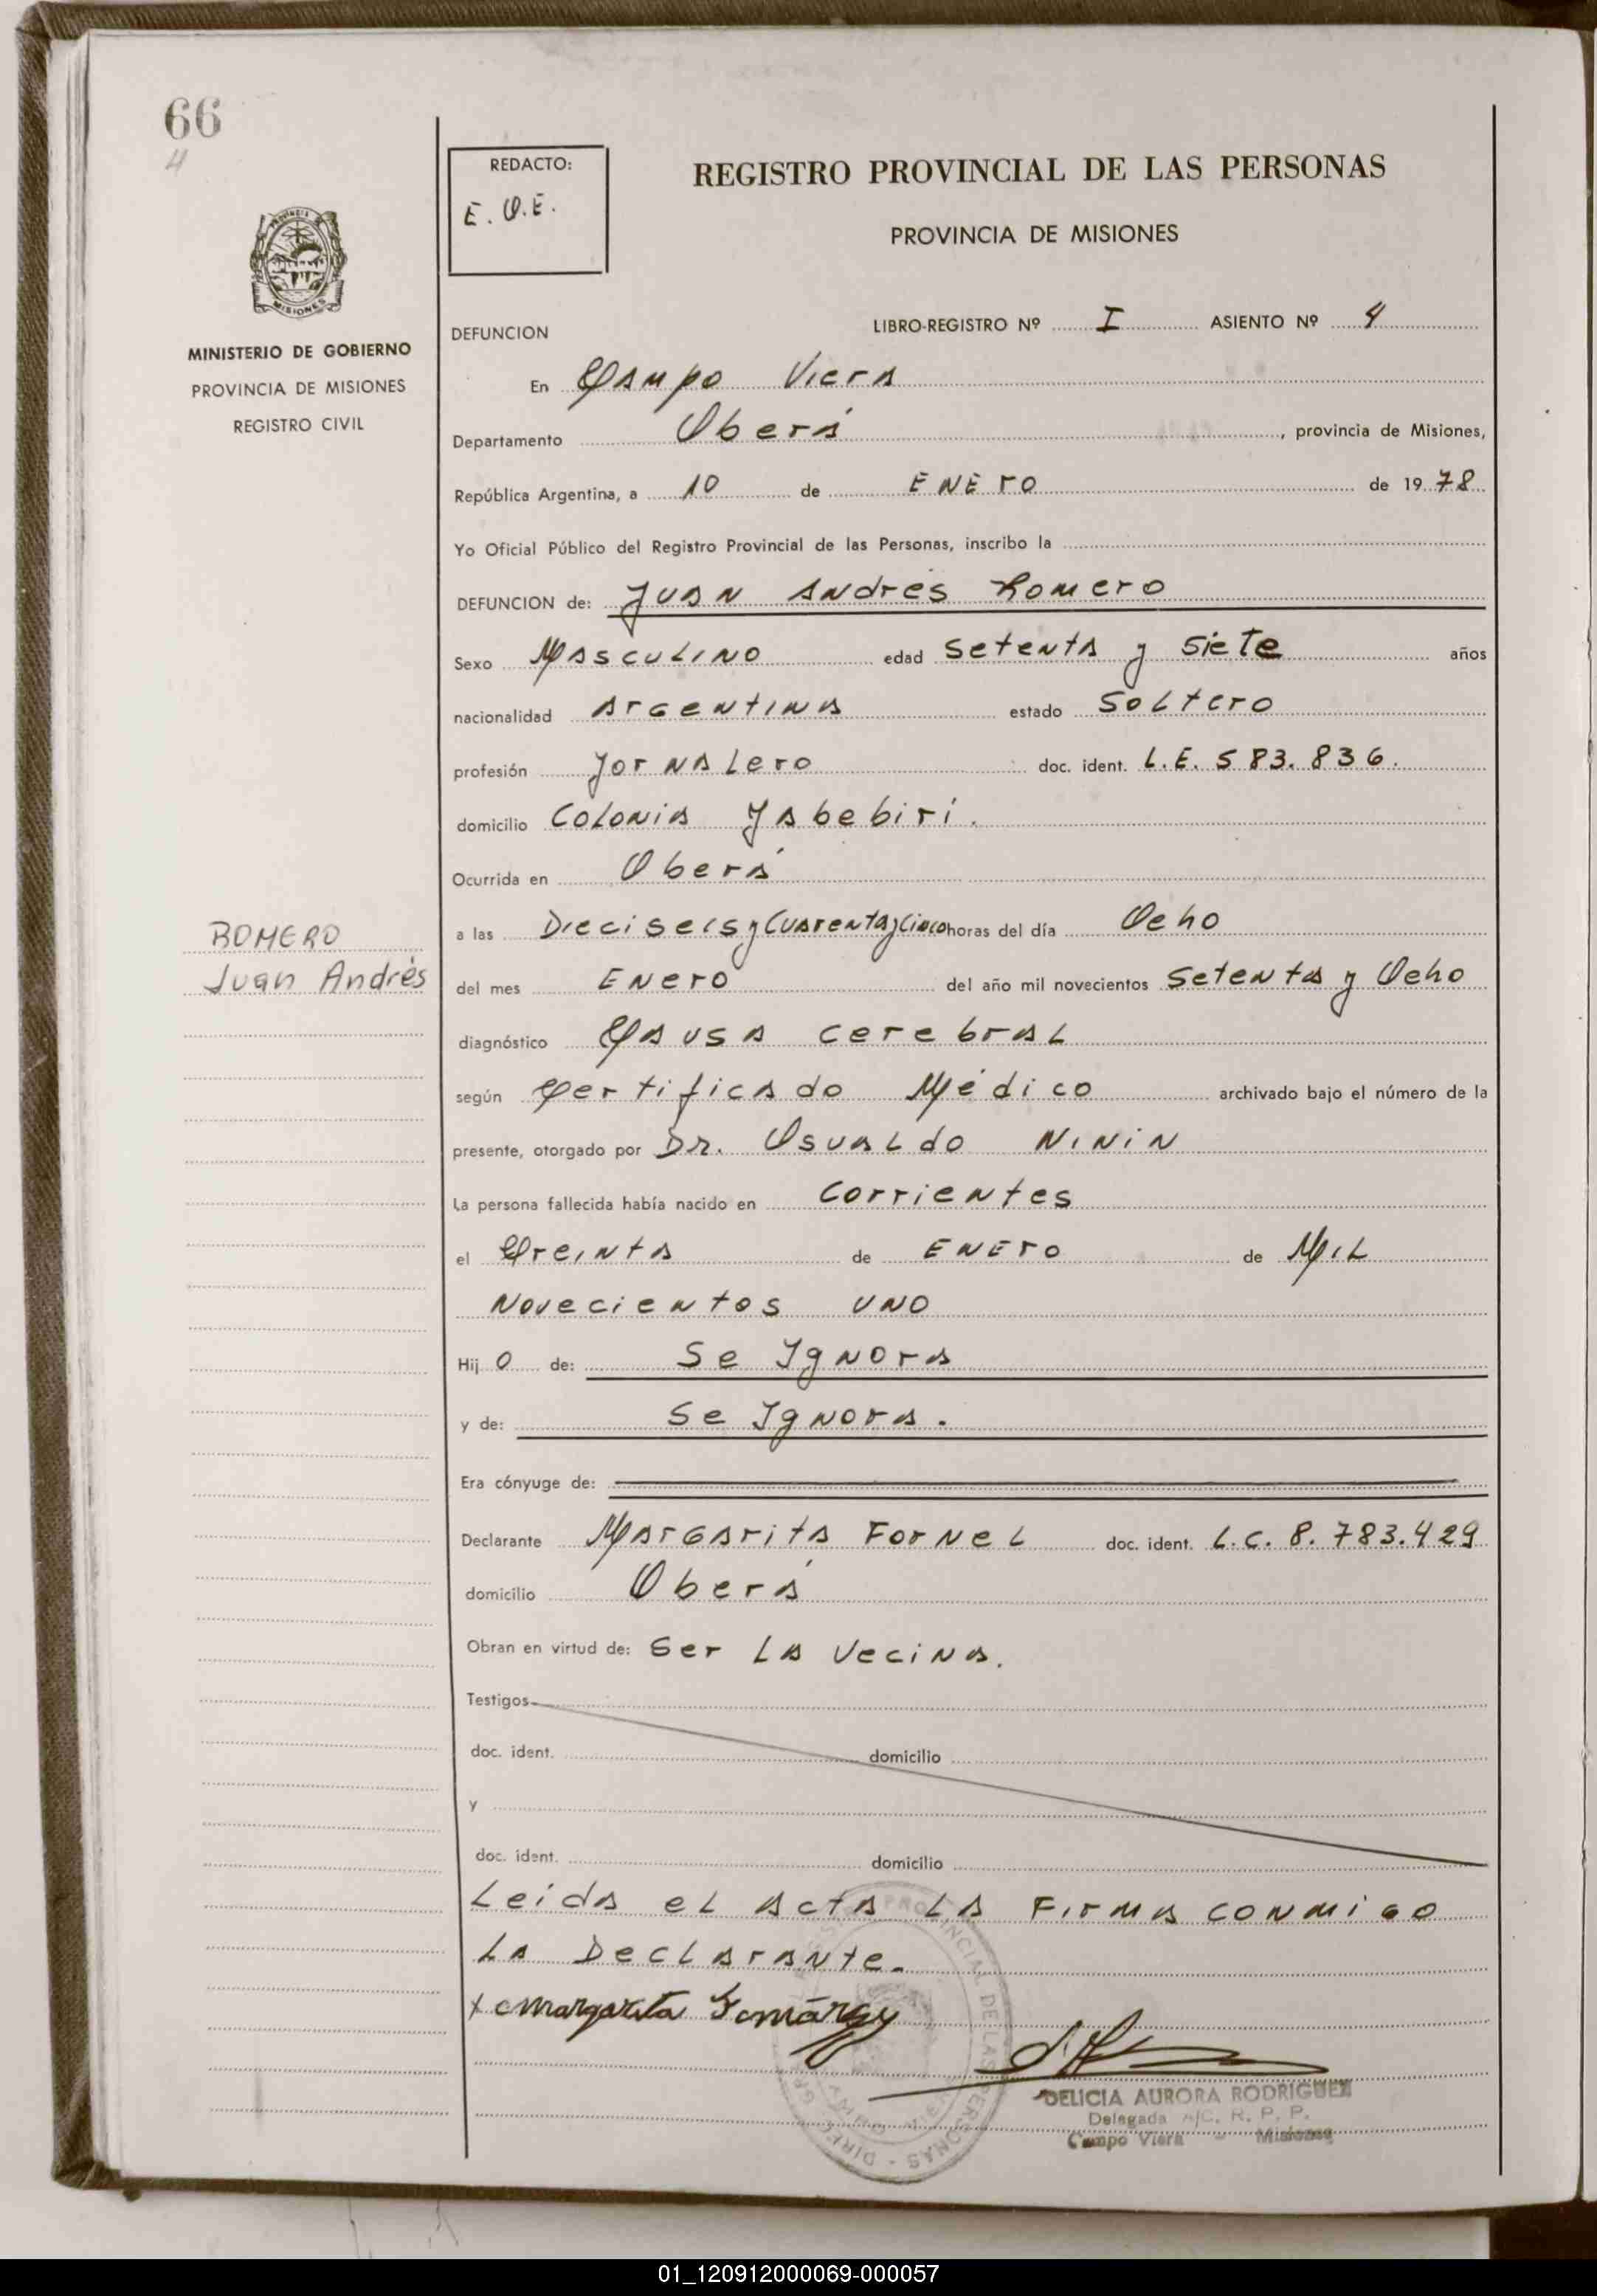 66
4
REDACTO:
E. O. E.
REGISTRO PROVINCIAL DE LAS PERSONAS
PROVINCIA DE MISIONES
MISIONES
MINISTERIO DE GOBIERNO
PROVINCIA DE MISIONES
REGISTRO CIVIL
DEFUNCION
LIBRO-REGISTRO Nº I ASIENTO Nº 4
En Campo Viera
Departamento Oberá, provincia de Misiones,
República Argentina, a 10 de ENERO de 1978
Yo Oficial Público del Registro Provincial de las Personas, inscribo la
DEFUNCION de: Juan Andrés Romero
Sexo Masculino edad Setenta y Siete años
nacionalidad Argentina estado Soltero
profesión Jornalero doc. ident. L.E. 583.836.
domicilio Colonia Yabebirí.
Ocurrida en Oberá
ROMERO
Juan Andrés
a las Dieciseis y Cuarenta y Cinco horas del día Ocho
del mes Enero del año mil novecientos Setenta y Ocho
diagnóstico Causa cerebral
según Certificado Médico archivado bajo el número de la
presente, otorgado por Dr. Osvaldo Ninin
La persona fallecida había nacido en Corrientes
el Treinta de ENERO de Mil
Novecientos UNO
Hijo de: Se Ignora
y de: Se Ignora.
Era cónyuge de:
Declarante Margarita Fornel doc. ident. L.C. 8.783.429
domicilio Oberá
Obran en virtud de: Ser La Vecina.
Testigos
doc. ident. domicilio
y
doc. ident. domicilio
Leida el acta La Firma conmigo
La Declarante.
x Margarita
DELICIA AURORA RODRIGUEZ
Delegada A/C. R. P. P.
Campo Viera - Misiones
01_120912000069-000057